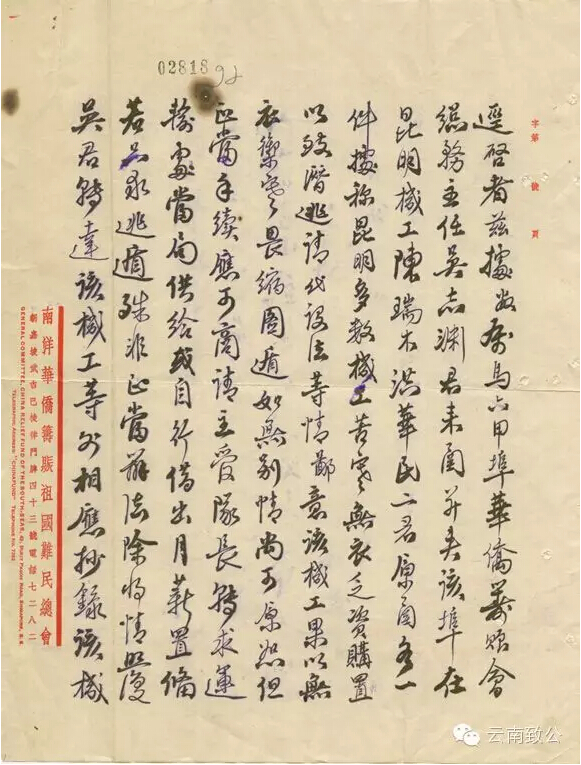 02818
92
字第 號 頁
逕啓者茲據 馬六甲埠華僑籌賑會
總務主任吳志淵君來函並夾該埠在
昆明械工陳瑞木洪華民二君原函各一
件據稱昆明多数械工苦寒無衣乏資購置
以致潛逃請代設法等情鄙意該械工果以無
衣禦寒畏縮圖遁如無別情尚可原恕但
正當手續應可商請主管隊長轉求運
輸處當局供給或自行借出月薪置備
若只 逃遁殊非正當辦法除將情照覆
吳君轉達該械工等外相應抄錄該械
南洋華僑籌賑祖國難民總會
新嘉坡武吉巴梳律門牌四十三號電話七二八二
GENERAL COMMITTEE, CHINA RELIEF FUND OF THE SOUTH-SEAS, 43, BUKIT PASOH ROAD, SINGAPORE, S. S.
TELEGRAPHIC ADDRESS: "CHINAFUND" TELEPHONE No. 7282
云南致公